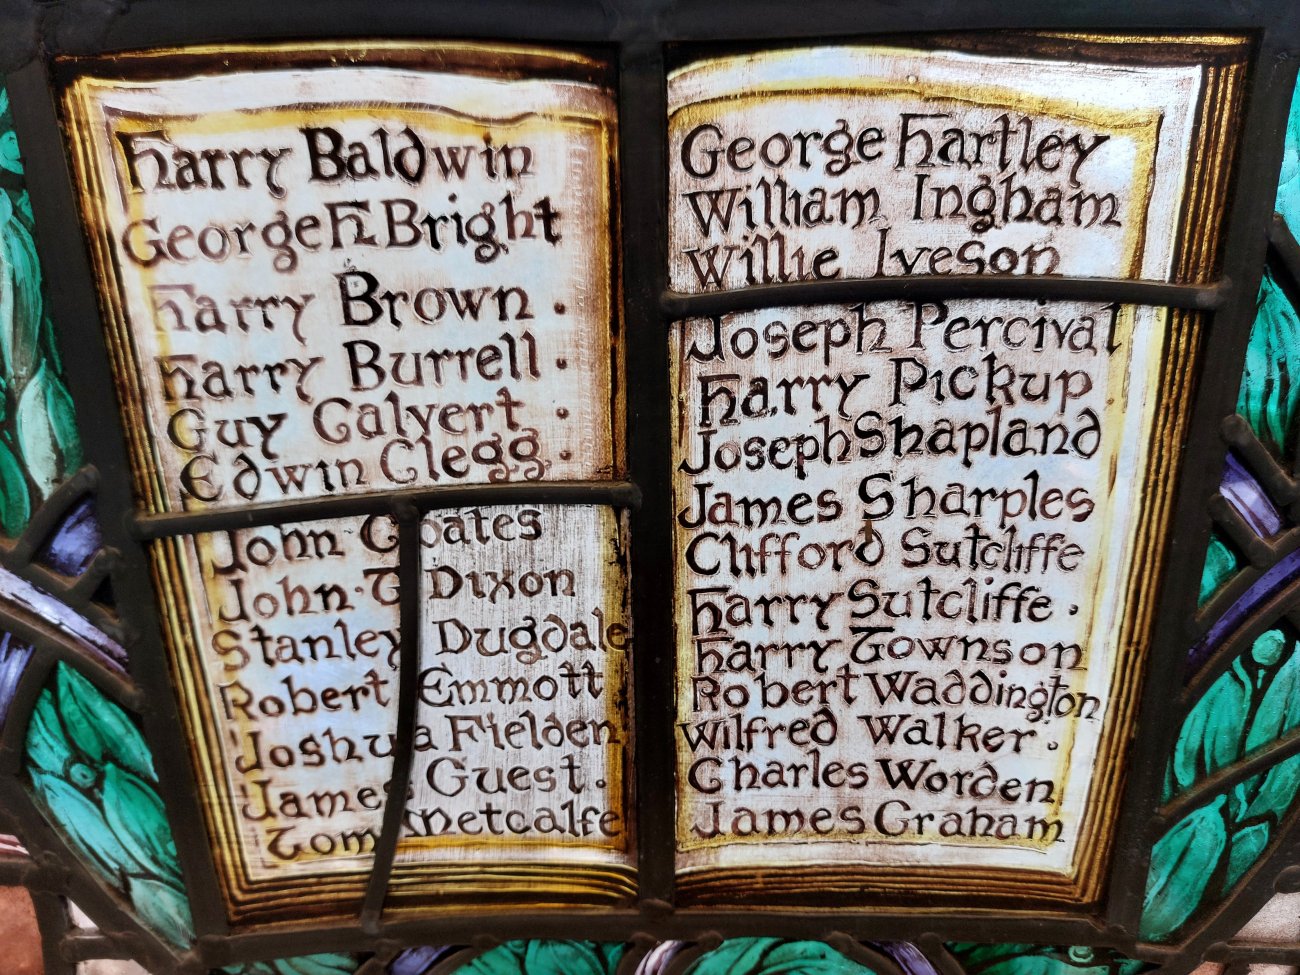 Harry Baldwin
George H Bright
Harry Brown .
Harry Burrell .
Guy Calvert .
Edwin Clegg .
John Coates
John T Dixon
Stanley Dugdale
Robert Emmott
Joshua Fielden
James Guest .
Tom Metcalfe
George Hartley
William Ingham
Willie Iveson
Joseph Percival
Harry Pickup
Joseph Shapland
James Sharples
Clifford Sutcliffe
Harry Sutcliffe .
Harry Townson
Robert Waddington
Wilfred Walker .
Charles Worden
James Graham